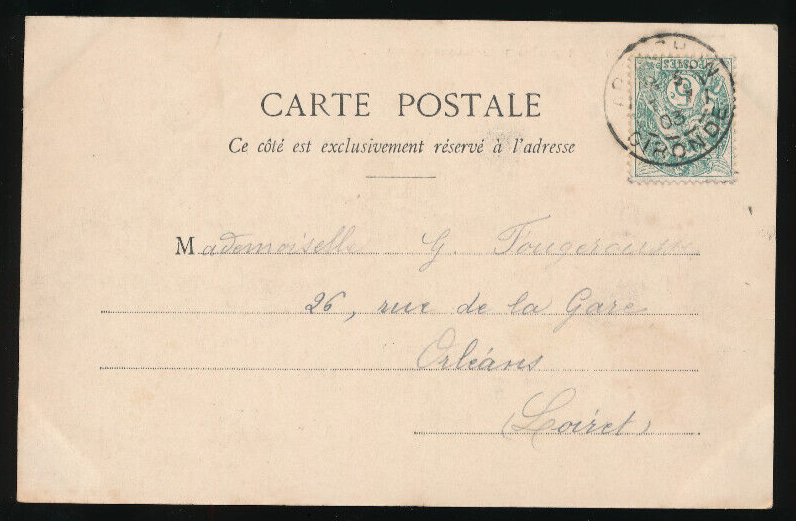 CARTE POSTALE
Ce côté est exclusivement réservé à l'adresse
POSTES
03
GIRONDE
Mademoiselle G. Fougerousse
26, rue de la Gare
Orléans
(Loiret)